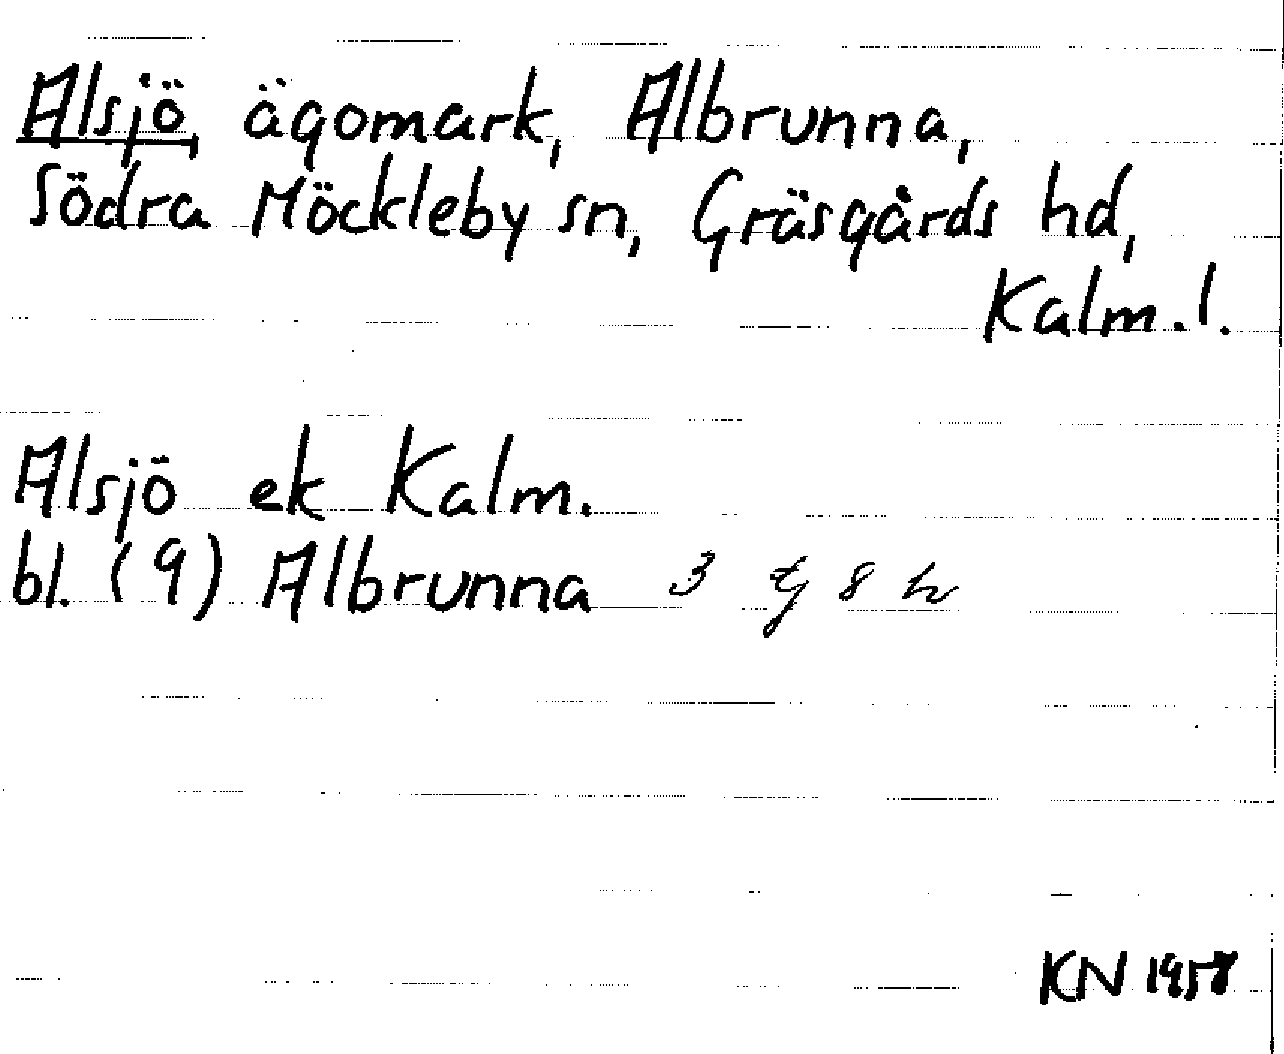 Alsjö, ägomark, Albrunna,
Södra Möckleby sn, Gräsgårds hd,
Kalm.l.
Alsjö ek Kalm.
bl. (9) Albrunna 3 f 8 h
KN 1958